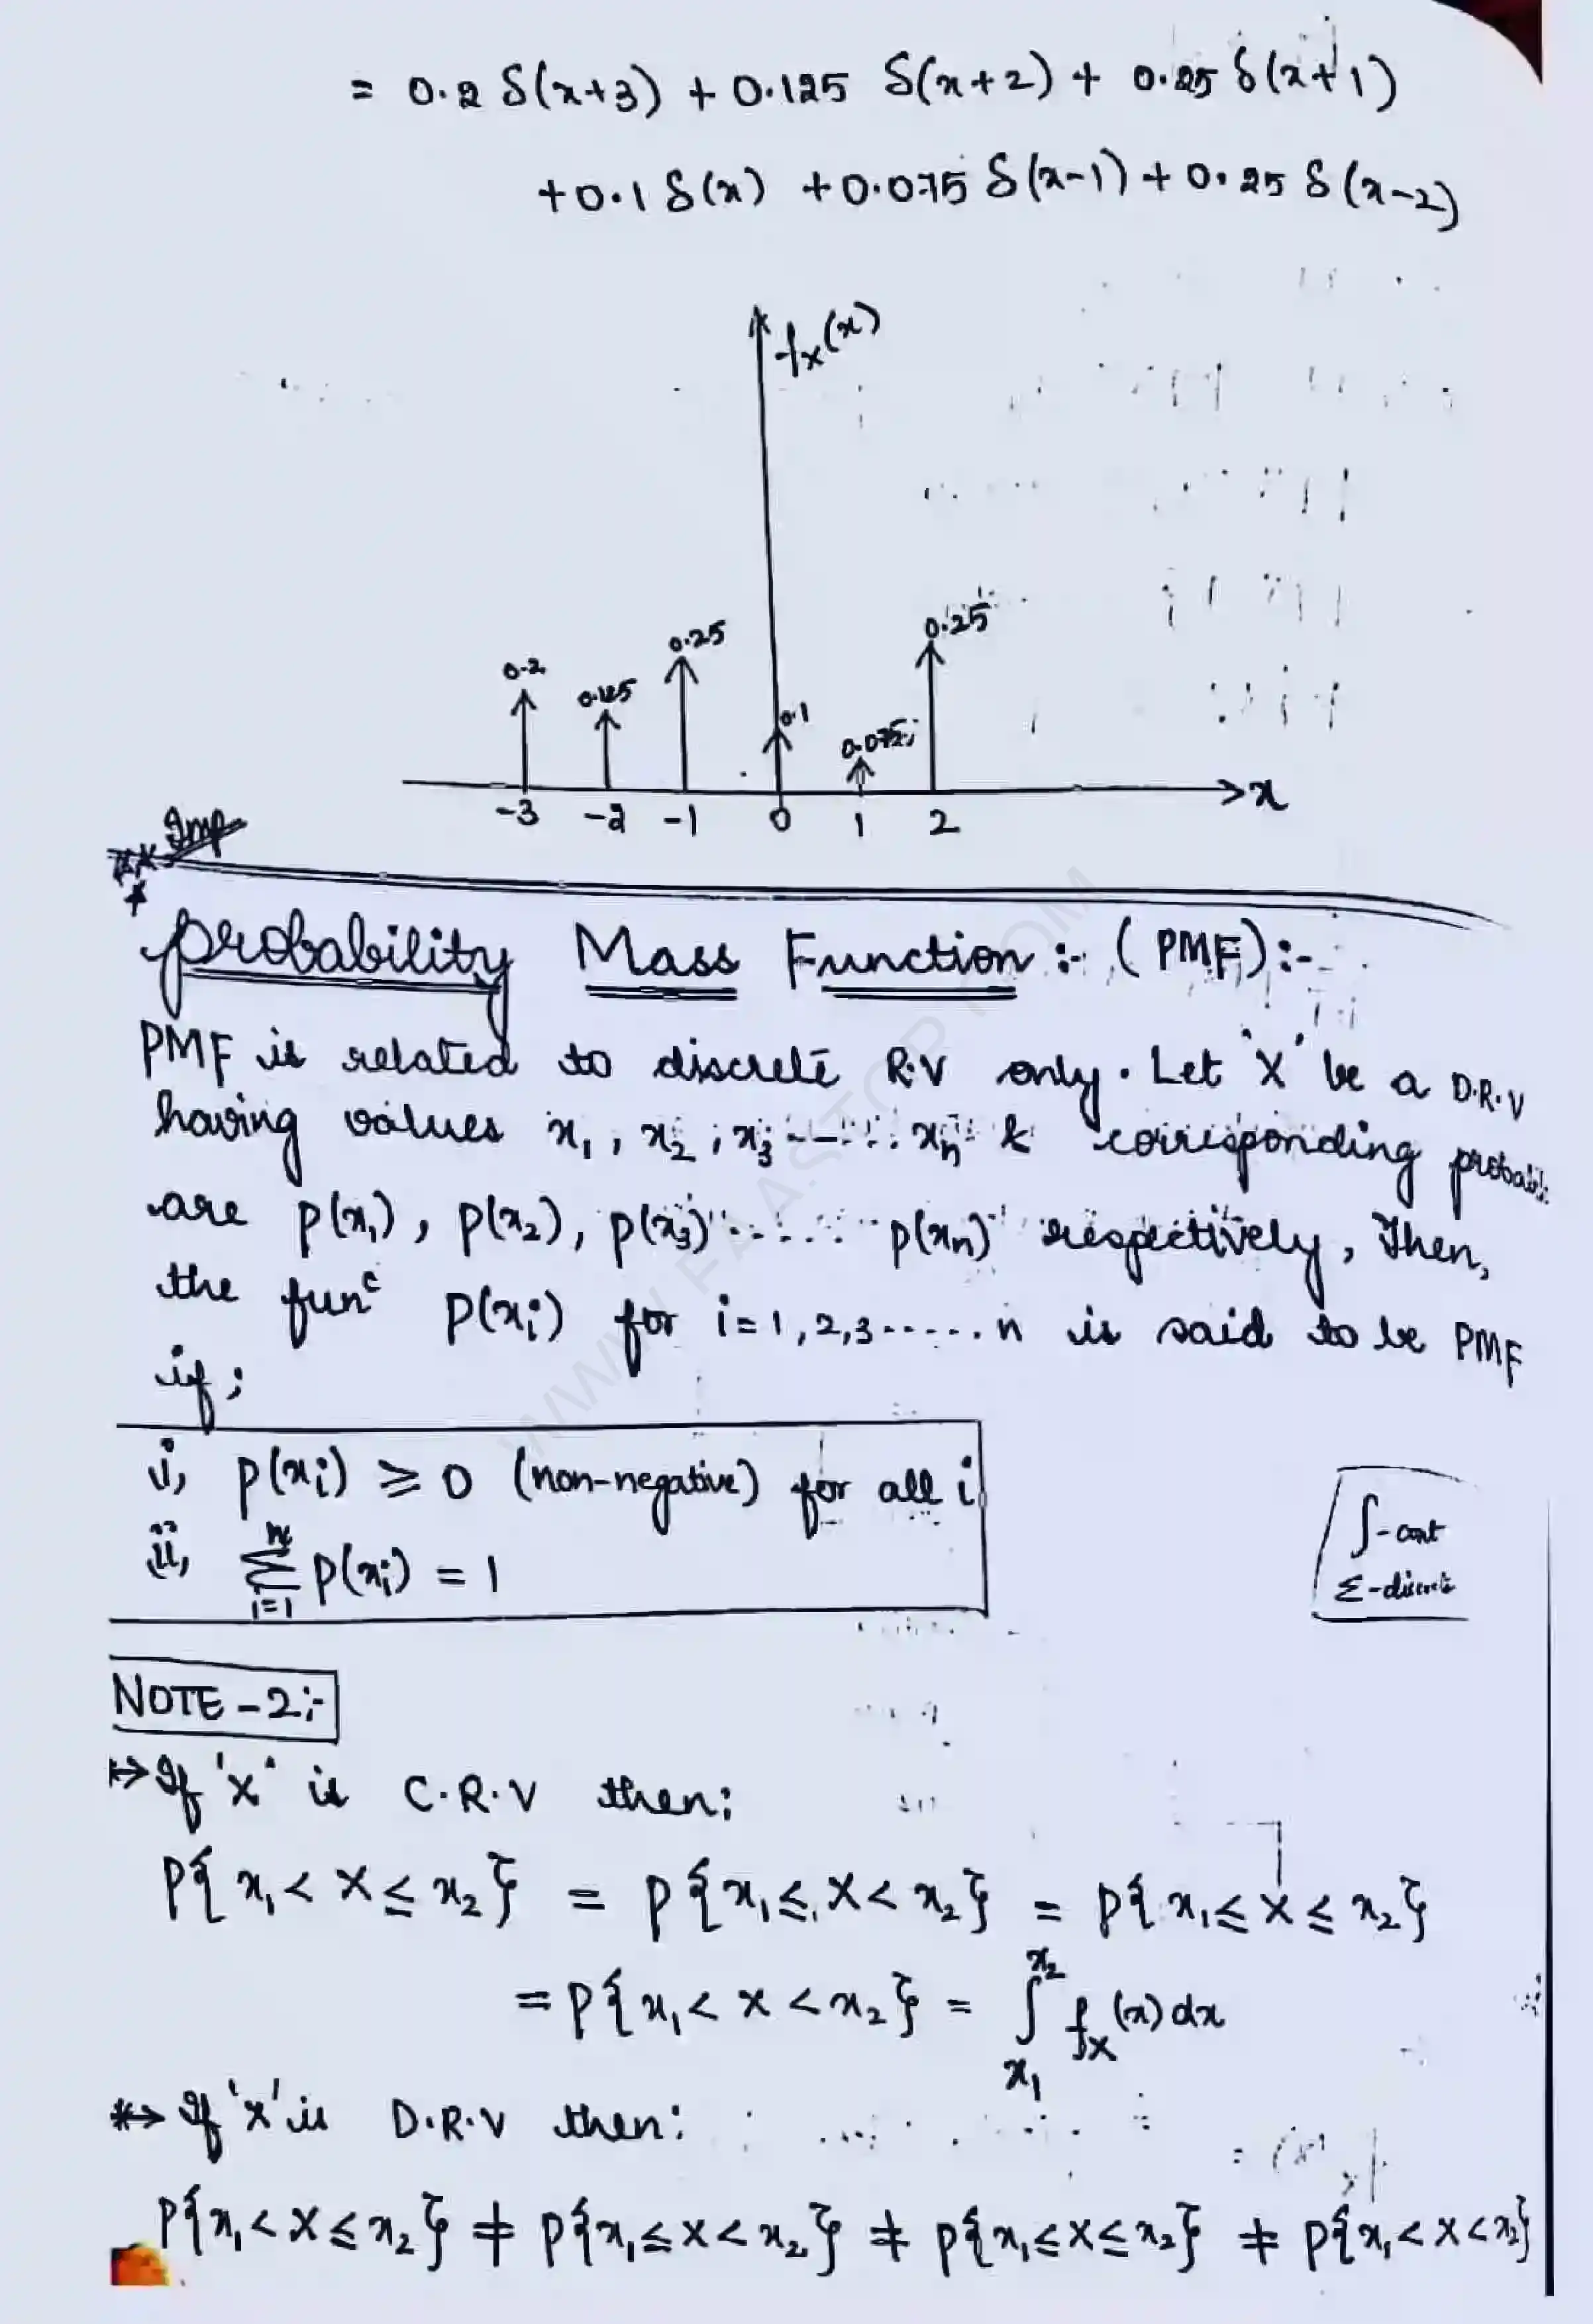 = 0.2 δ(x+3) + 0.125 δ(x+2) + 0.25 δ(x+1)
+0.1 δ(x) +0.075 δ(x-1) + 0.25 δ(x-2)
fx(x)
0.25
0.25
0.2
0.125
0.1
0.075
-3 -2 -1 0 1 2
x
Imp
Probability Mass Function :- (PMF):-
PMF is related to discrete R.V only. Let 'X' be a D.R.V
having values x₁, x₂, x₃ ----- xₙ & corresponding probabi
are p(x₁), p(x₂), p(x₃) ...... p(xₙ) respectively, Then,
the funᶜ P(xᵢ) for i=1,2,3.....n is said to be PMF
if;
i, p(xᵢ) ≥ 0 (non-negative) for all i
ii, n∑i=1 p(xᵢ) = 1
∫-cont
Σ-discrete
NOTE-2:-
↦ If 'x' is C.R.V then:
P{x₁ < X ≤ x₂} = P{x₁ ≤ X < x₂} = P{x₁ ≤ X ≤ x₂}
= P{x₁ < X < x₂} = ∫x₁x₂ fX(x) dx
*→ If 'x' is D.R.V then:
P{x₁ < X ≤ x₂} ≠ P{x₁ ≤ X < x₂} ≠ P{x₁ ≤ X ≤ x₂} ≠ P{x₁ < X < x₂}